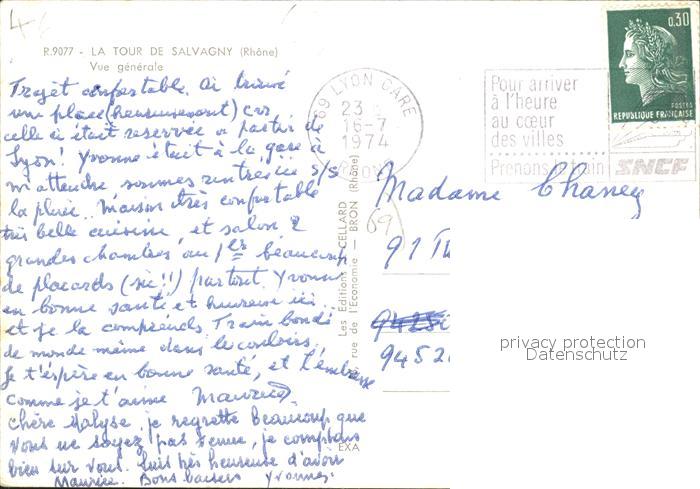 R.9077 - LA TOUR DE SALVAGNY (Rhône)
Vue générale
Trajet confortable. Ai trouvé
une place (heureusement) car
celle ci était reservée a partir de
Lyon! Yvonne était à la gare à
m'attendre sommes rentrés ici s/s
la pluie. Maison très confortable
très belle cuisine et salon 2
grandes chambres au 1er beaucoup
de placards (sic!!) partout. Yvonne
en bonne santé et heureuse ici
et je la comprends. Train bondé
de monde même dans le couloirs.
Je t'espère en bonne santé, et t'embrasse
comme je t'aime Maurice
Chère Malyse, je regrette beaucoup que
vous ne soyez pas venue, je comptais
bien sur vous. Suis très heureuse d'avoir
Maurice. Bons baisers Yvonne.
Les Editions CELLARD
rue de l'Economie - BRON (Rhône)
EXA
69 LYON GARE
23
16-7
1974
RHONE
Pour arriver
à l'heure
au cœur
des villes
Prenons le train SNCF
0,30
POSTES
REPUBLIQUE FRANÇAISE
Madame Chaney
69
91
9452
privacy protection
Datenschutz